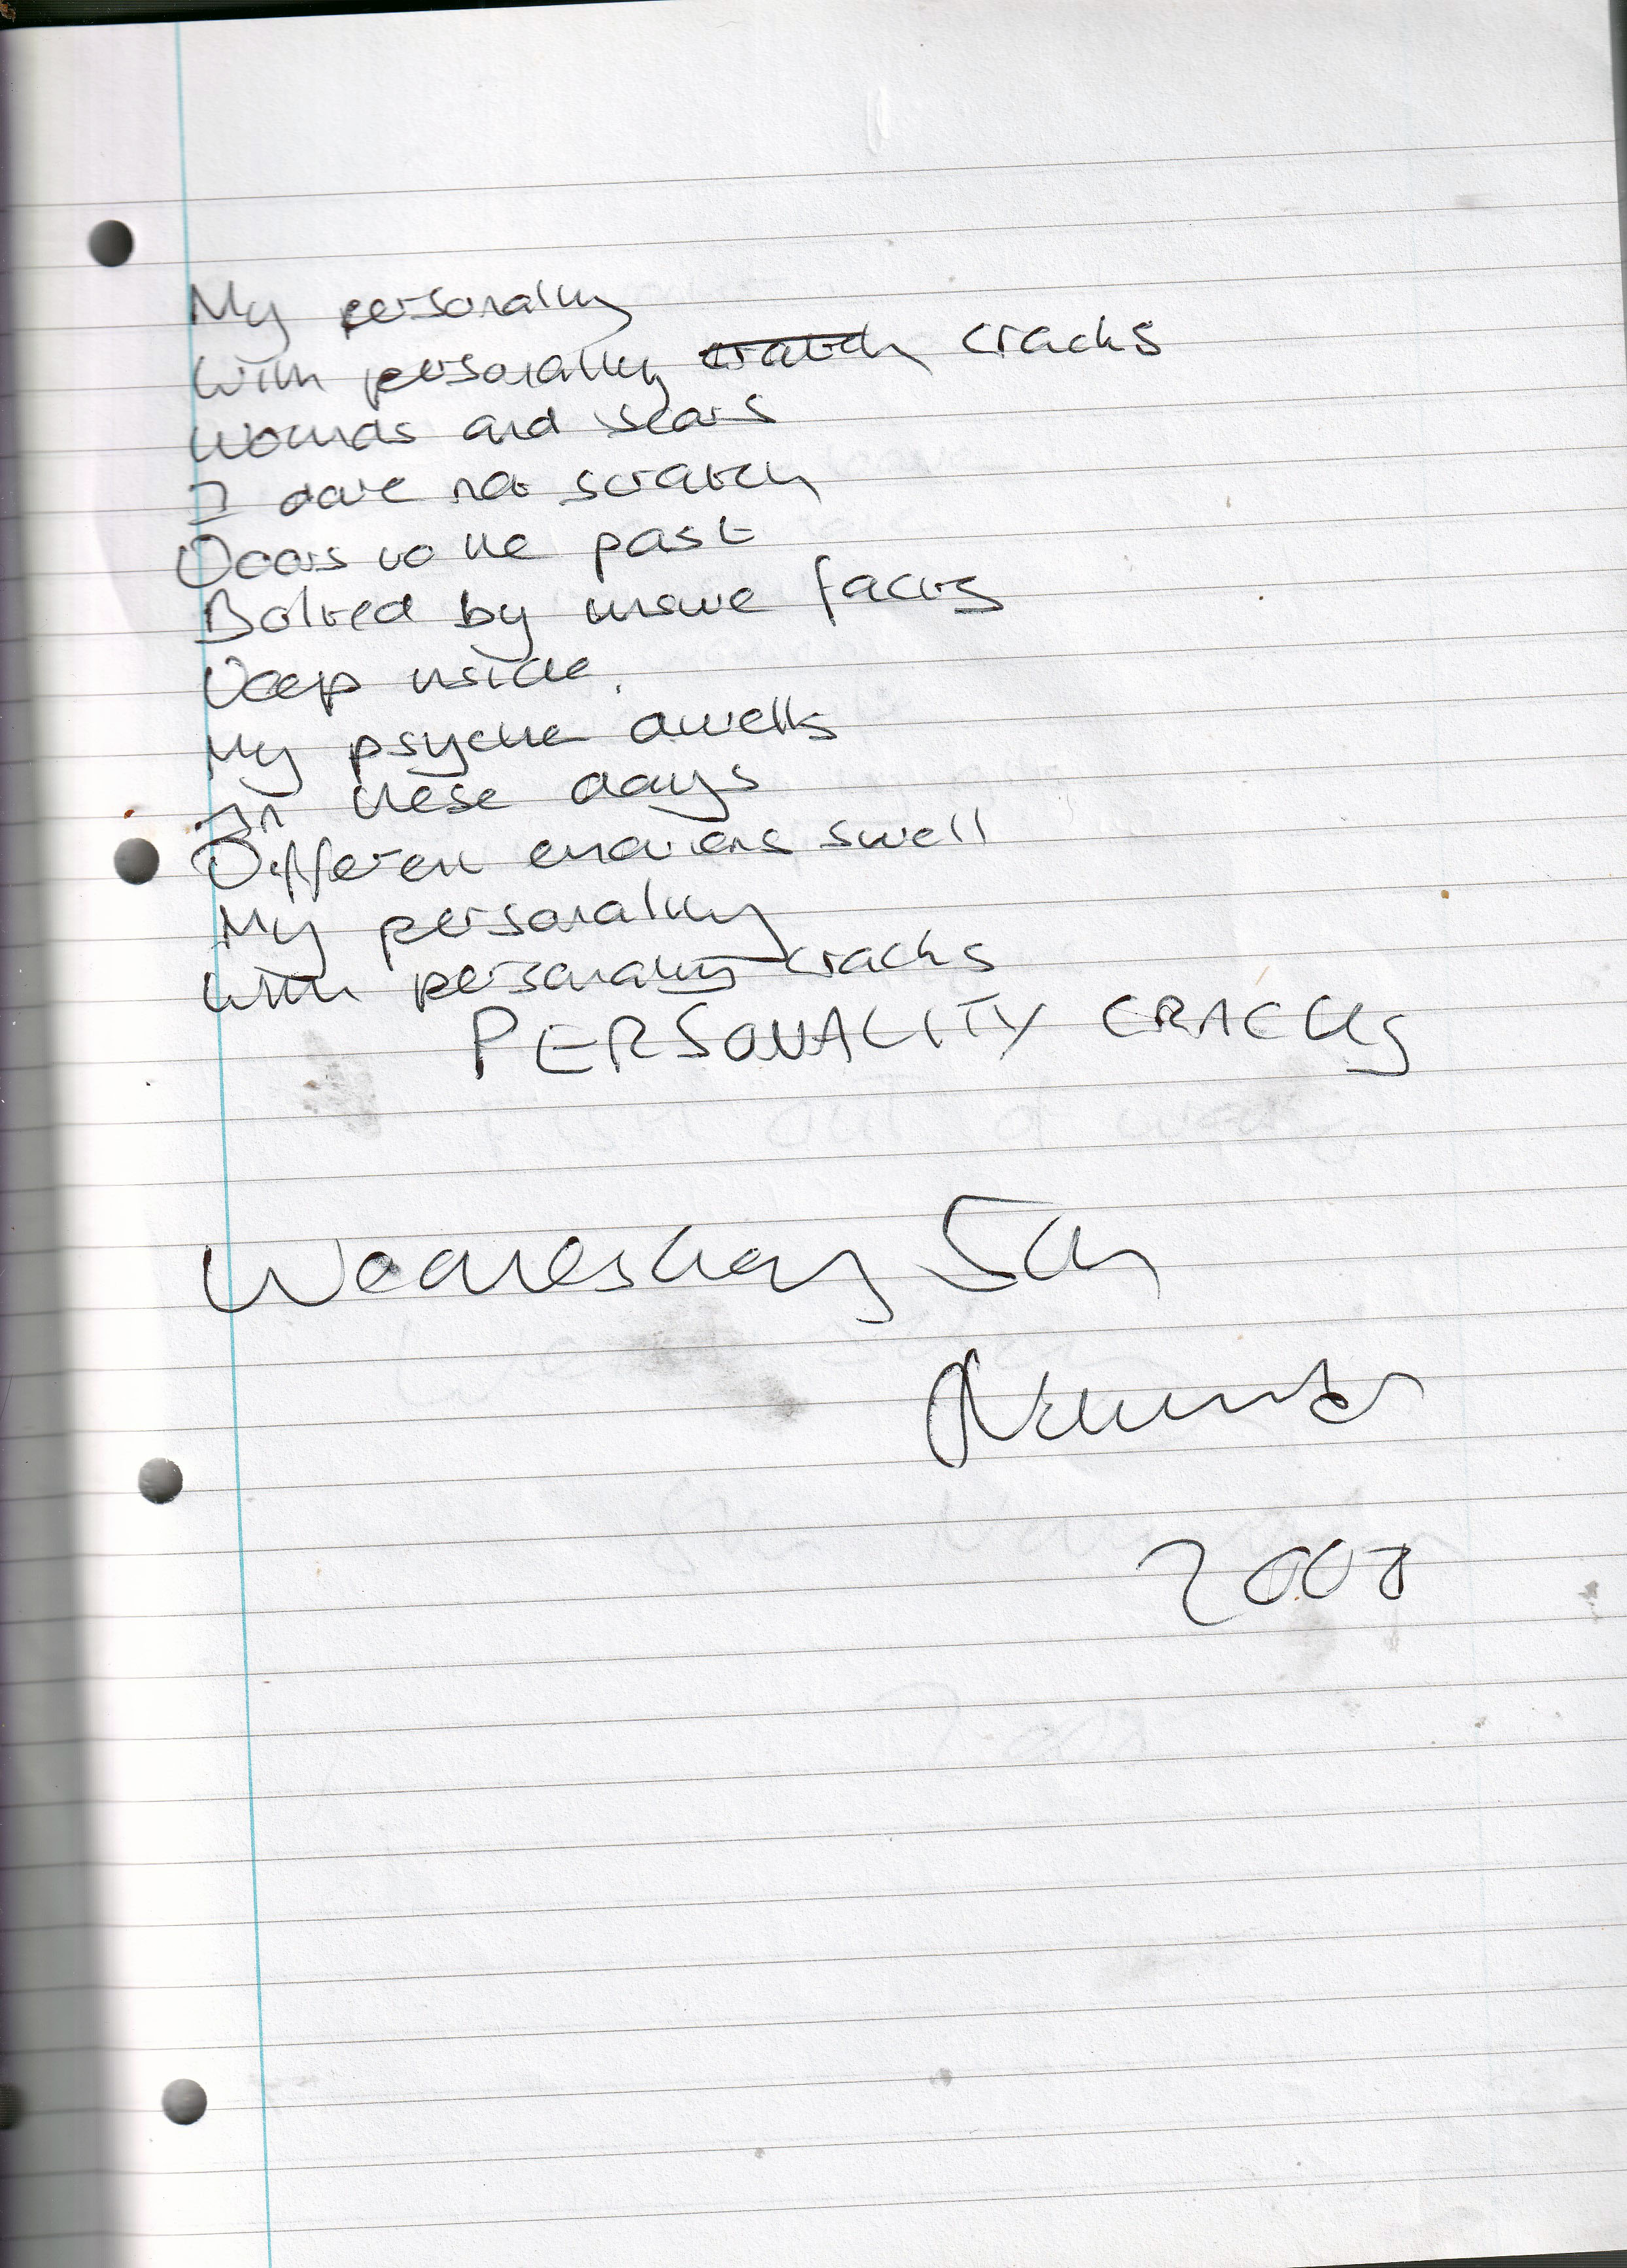 My personality
With personality cracks
Wounds and scars
I dare not scratch
Doors to the past
Bolted by facts
Deep inside.
My psyche dwells
In these days
Different emotions swell
My personality
With personality cracks
PERSONALITY CRACKS
Wednesday 5th
November
2008